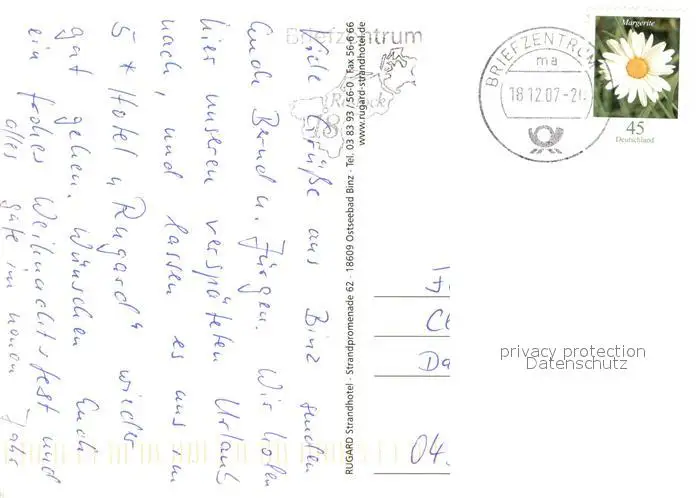 Viele Grüße aus Binz senden
Euch Bernd u. Jürgen. Wir holen
hier unseren verspäteten Urlaub
nach, und lassen es uns im
5 * Hotel „Rugard“ wieder
gut gehen. Wünschen Euch
ein frohes Weihnachtsfest und
alles gute im neuen Jahr
RUGARD Strandhotel · Strandpromenade 62 · 18609 Ostseebad Binz · Tel. 03 83 93 / 56-0 · Fax 56-6 66
www.rugard-strandhotel.de
Briefzentrum
BRIEFZENTRUM
ma
18.12.07-20
Margerite
45
Deutschland
Da
04.
privacy protection
Datenschutz